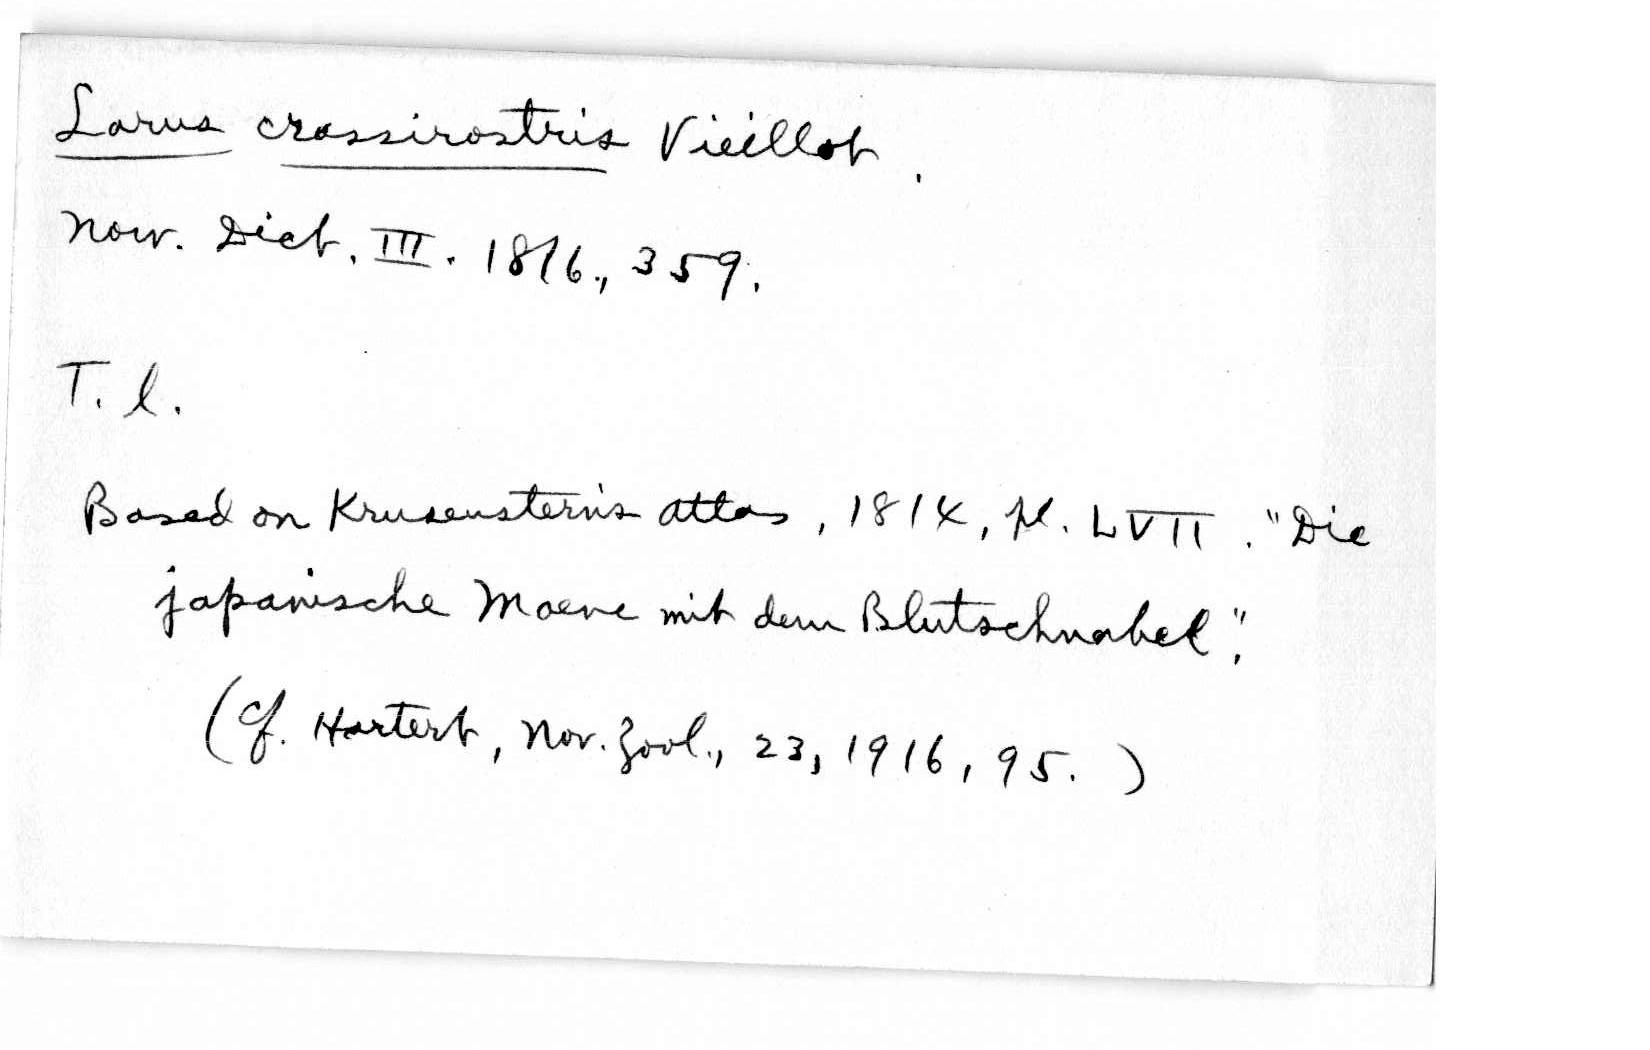 Larus crassirostris Vieillot.
Nouv. Dict. III. 1816., 359.
T. l.
Based on Krusenstern's atlas, 1814, pl. LVII. "Die
japanische Moeve mit dem Blutschnabel".
(Cf. Hartert, Nov. Zool., 23, 1916, 95.)